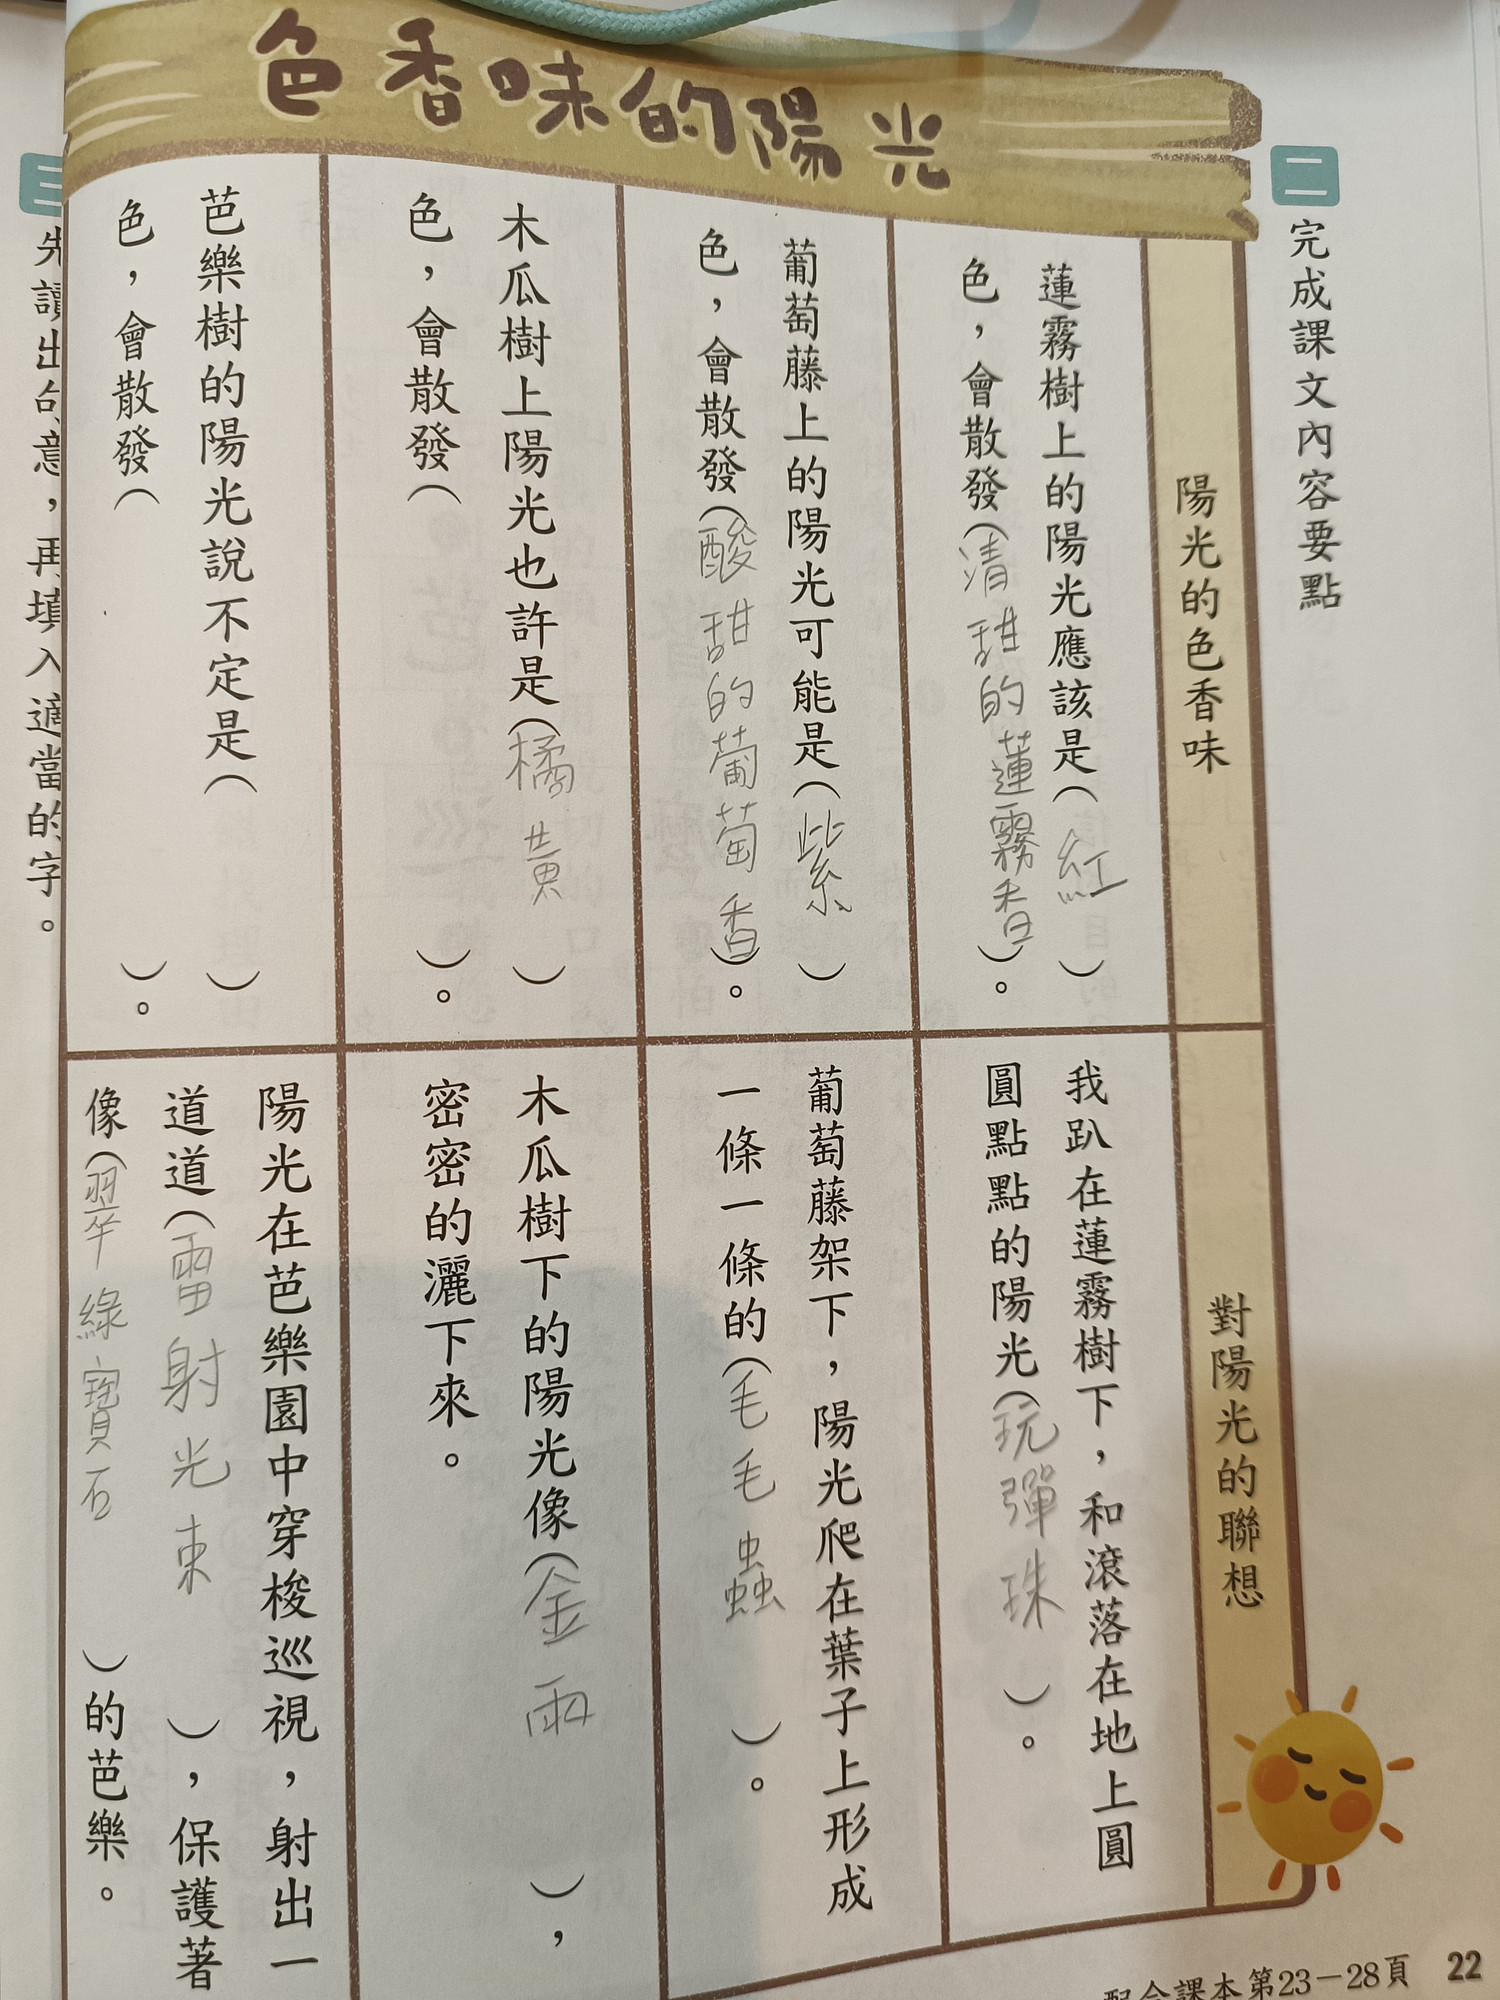 色香味的陽光
二
完成課文內容要點
陽光的色香味
對陽光的聯想
蓮霧樹上的陽光應該是(紅)
色，會散發(清甜的蓮霧香)。
我趴在蓮霧樹下，和滾落在地上圓
圓點點的陽光(玩彈珠)。
葡萄藤上的陽光可能是(紫)
色，會散發(酸甜的葡萄香)。
葡萄藤架下，陽光爬在葉子上形成
一條一條的(毛毛蟲)。
木瓜樹上陽光也許是(橘黃)
色，會散發( )。
木瓜樹下的陽光像(金雨)，
密密的灑下來。
芭樂樹的陽光說不定是( )
色，會散發( )。
陽光在芭樂園中穿梭巡視，射出一
道道(雷射光束)，保護著
像(翠綠寶石)的芭樂。
三
先讀出句意，再填入適當的字。
配合課本第23－28頁
22